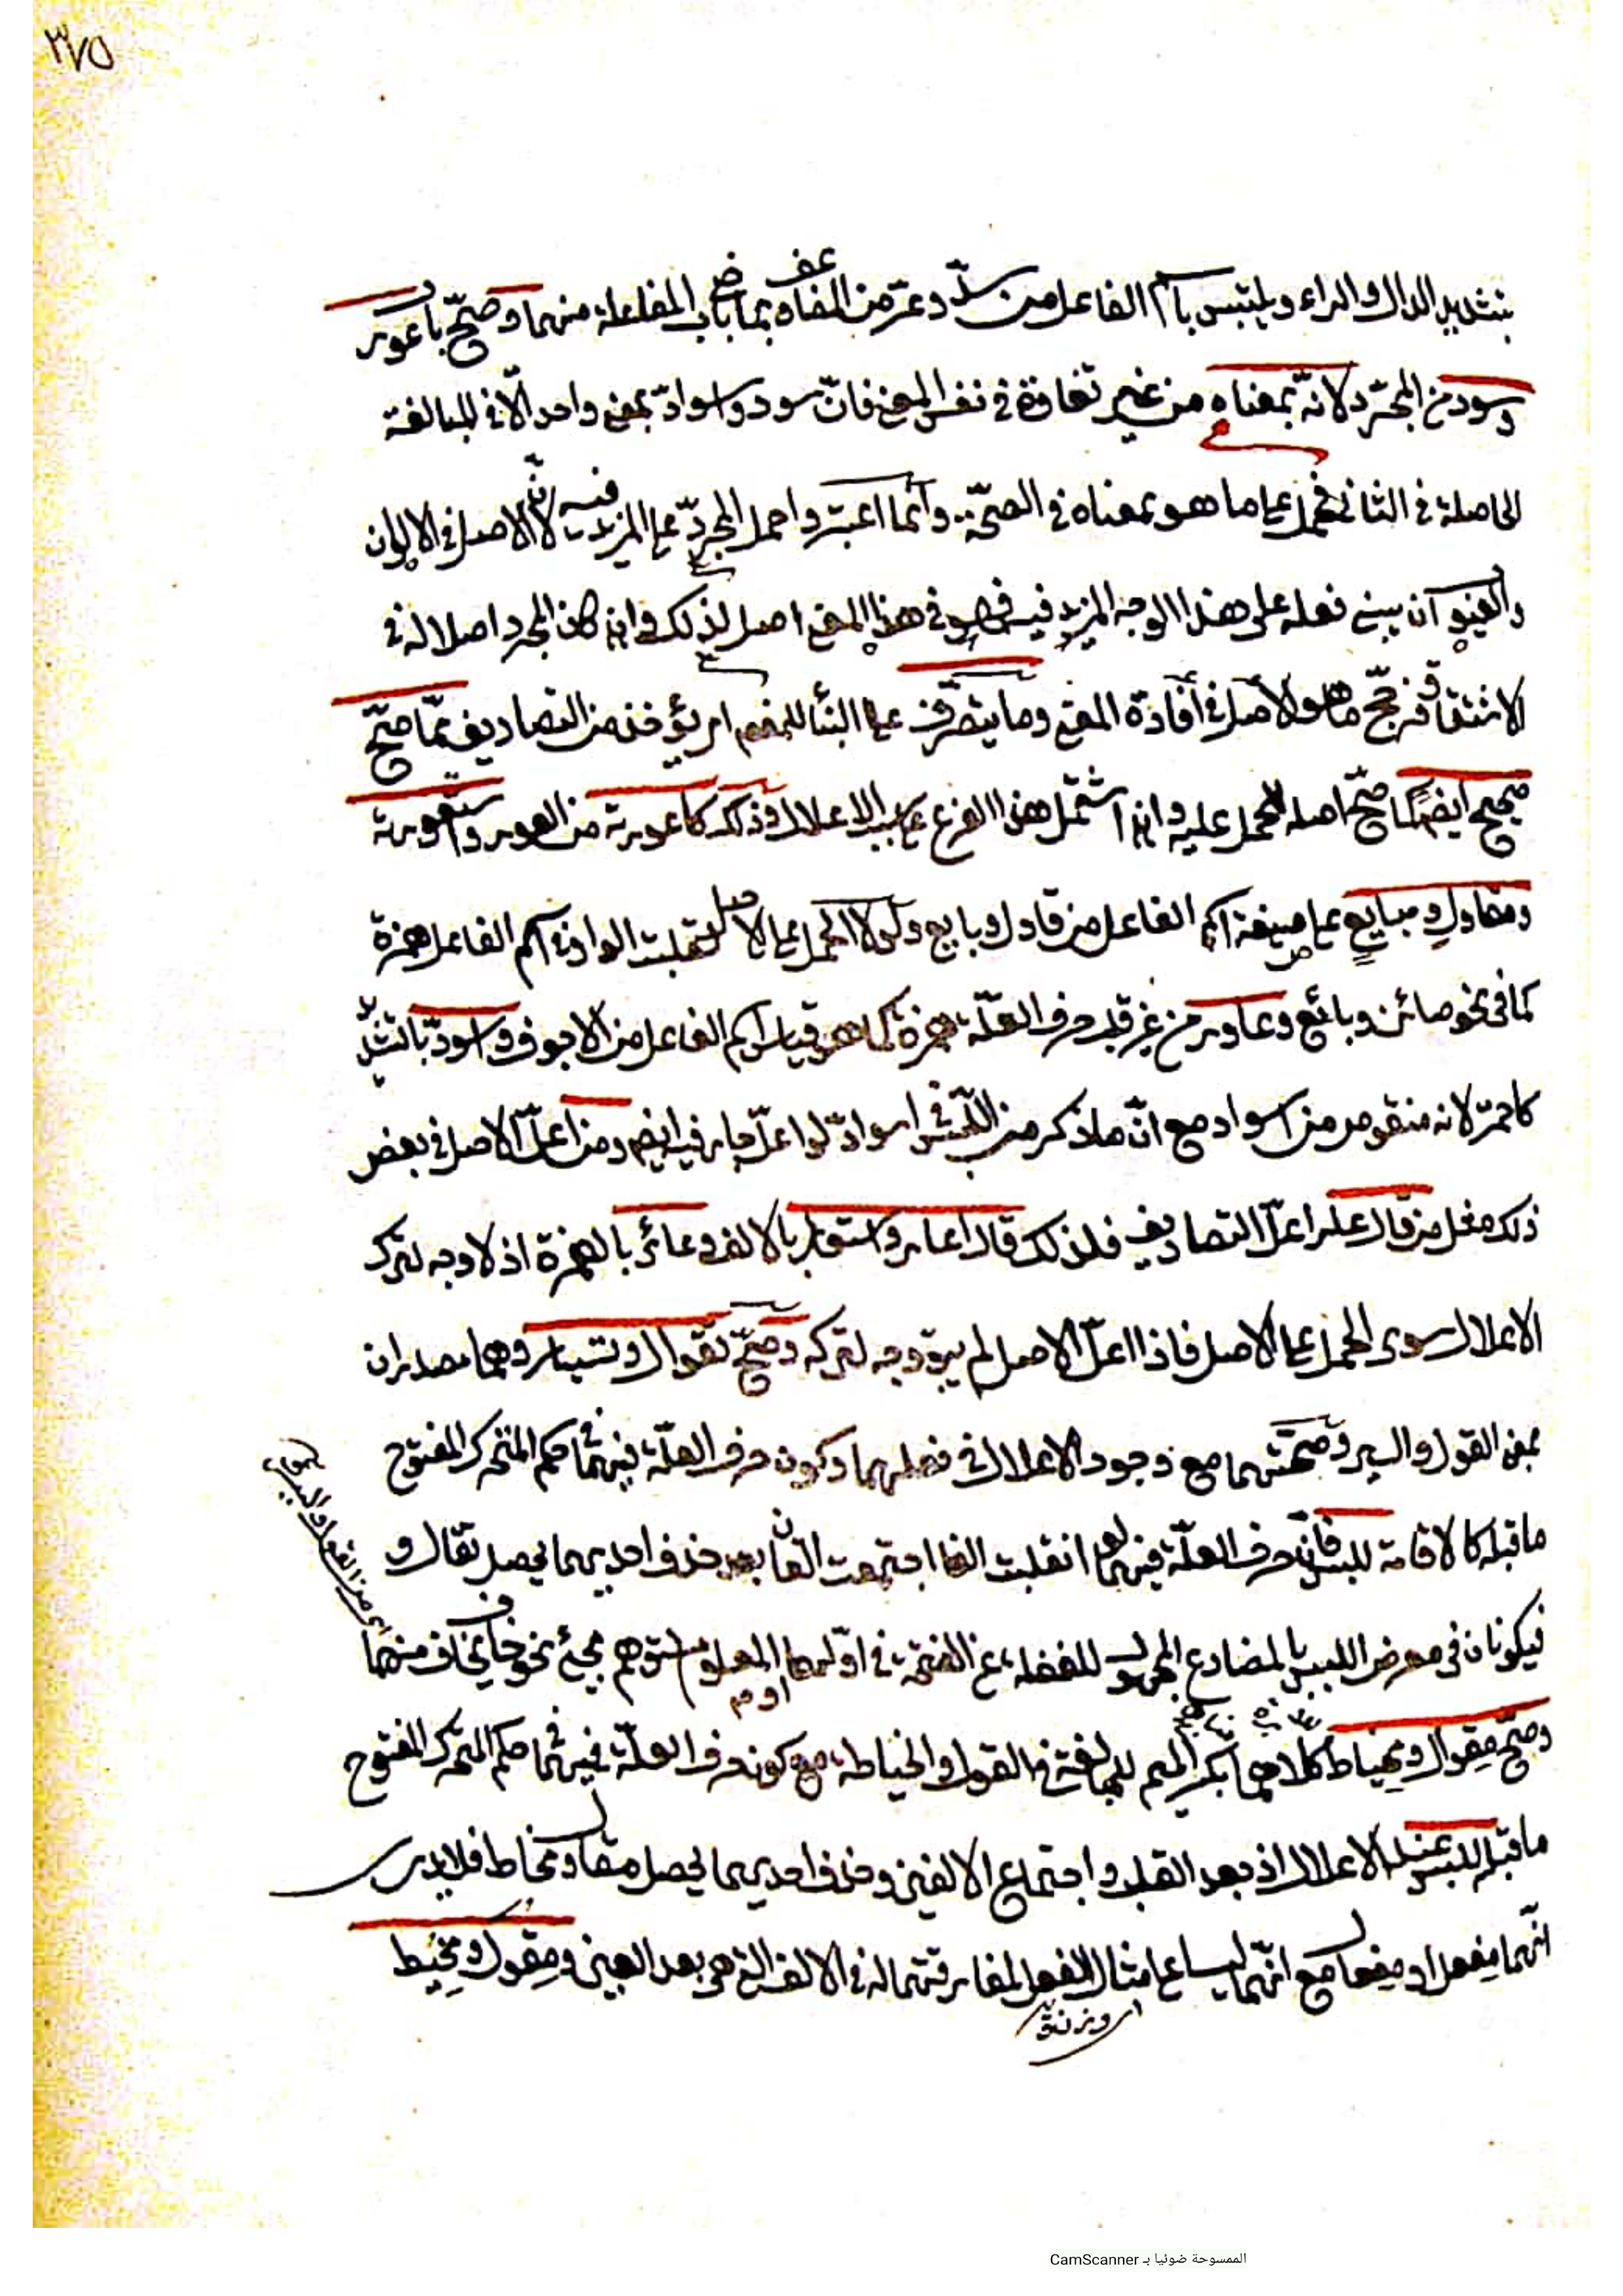 ٣٧٥
بتشديد الدال والراء ويلتبس باسم الفاعل من سدّ وعرّ من المضاعف بباب المفاعلة منهما وصحّ باب عور
وسود من المجرّد لانّه بمعناه من غير تفاوة في نفس المعنى فانّ سود واسوادّ بمعنى واحد الّا في المبالغة
الحاصلة في الثاني فحمل على ما هو بمعناه في الصحّة وانّما اعتبروا حمل المجرّد على المزيد فيه لانّ الاصل في الالوان
والعيوب ان يبنى فعله على هذا الوجه المزيد فيه فهو في هذا المعنى اصل لذلك وان كان المجرد اصلا له في
الاشتقاق فرجّح ما هو الاصل في افادة المعنى وما يتصرّف على البناء للمفعول اي يؤخذ من التصاريف ممّا صحّ
صحيح ايضًا كما صحّ اصله للحمل عليه وان اشتمل هذا الفرع على سبب الاعلال وذلك كاعورته من العور واستعورته
ومقاول ومبايع على صيغة اسم الفاعل من قاول وبايع ولولا الحمل على الاصل لقلبت الواو في اسم الفاعل همزة
كما في نحو صائن وبائع وعاور من غير قلب حرف العلّة همزة كما هو قياس اسم الفاعل من الاجوف واسودّ بالتشديد
كاحمرّ لانه منقوص من اسوادّ مع انّ ما ذكر من اللبس في اسوادّ لو اعلّ جار فيه ايضا ومن اعلّ الاصل في بعض
ذلك مثل من قال عار اعلّ التصاريف فلذلك قال اعار واستعار بالالف وعائر بالهمزة اذ لا وجه لترك
الاعلال سوى الحمل على الاصل فاذا اعلّ الاصل لم يبق وجه لتركه وصحّ تقوال وتسيار وهما مصدران
بمعنى القول والسير وصحّتهما مع وجود الاعلال في فعلهما وكون حرف العلّة فيهما في حكم المتحرك المفتوح
ما قبله كالاقامة للبس فانّ حرف العلّة فيهما لو انقلبت الفا اجتمعت الفان بعد حذف احديهما يحصل تقال و
فيكونان في معرض اللبس بالمضارع المجهول للغفلة عن الفتحة في اوّلهما او المعلوم لتوهم مجئ نحو خاف يخاف منهما
وصحّ مقوال ومخياط كلاهما بكسر الميم للمبالغة في القول والخياطة مع كون حرف العلّة فيهما في حكم المتحرك المفتوح
ما قبله للبس عند الاعلال اذ بعد القلب واجتماع الالفين وحذف احديهما يحصل مقال ومخاط فلا يدرى
انّهما مفعل او مفعال مع انّهما ليسا على مثال الفعل لمفارقتهما له في الالف التي هي بعد العين ومقول ومخيط
الممسوحة ضوئيا بـ CamScanner